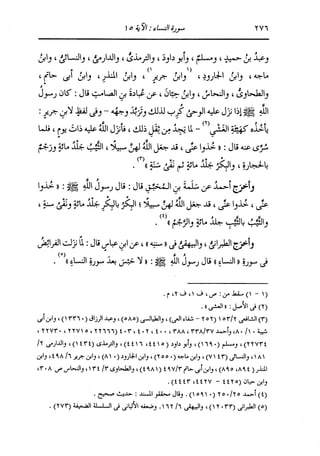 ٢٧٦ سورة النساء : الآية ١٥
وعبدُ بنُ حميدٍ، ومسلمٌ، وأبو داودَ، والترمذىُّ، والدارمىُّ، والنسائىُّ، وابنُ
ماجه، وابنُ الجارودِ، (١)وابنُ جريرٍ(١)، وابنُ المنذرِ، وابنُ أبى حاتمٍ،
والطحاوىُّ، والنحاسُ، وابنُ حبانَ، عن عُبادةَ بنِ الصامتِ قال: كان رسولُ
اللَّهِ ﷺ إذا نزَل عليه الوحىُ كُرِب لذلك وتَرَبَّد وجهُه - وفى لفظٍ لابنِ جريرٍ:
يأخُذُه كهيئةِ الغَشْىِ(٢) - لما يَجِدُ مِن ثِقَلِ ذلك، فأنزَل اللَّهُ عليه ذاتَ يومٍ، فلما
سُرِّى عنه قال: «خُذوا عنى، قد جعَل اللَّهُ لهنَّ سبيلًا، الثَّيِّبُ جَلْدُ مائةٍ ورَجْمٌ
بالحجارةِ، والبِكْرُ جَلْدُ مائةٍ ثم نَفْىُ سَنَةٍ»(٣).
وأخرَج أحمدُ عن سَلَمةَ بنِ المُحَبَّقِ قال: قال رسولُ اللَّهِ ﷺ: «خُذوا
عنى، خُذوا عنى، قد جعَل اللَّهُ لهنَّ سبيلًا؛ البِكْرُ بالبِكْرِ جَلْدُ مائةٍ ونَفْىُ سنةٍ،
والثَّيِّبُ بالثَّيِّبِ جَلْدُ مائةٍ والرَّجْمُ»(٤).
وأخرَج الطبرانىُّ، والبيهقىُّ فى «سننِه»، عن ابنِ عباسٍ قال: لمَّا نزَلت الفرائضُ
فى سورةِ «النساءِ» قال رسولُ اللَّهِ ﷺ: «لا حَبْسَ بعدَ سورةِ النساءِ»(٥).
(١ - ١) سقط من: ص، ف ١، ف ٢، م.
(٢) فى الأصل: «العشى».
(٣) الشافعى ١٥٣/٢ (٢٥٢ - شفاء العى)، والطيالسى (٥٨٥)، وعبد الرزاق (١٣٣٦٠)، وابن أبى
شيبة ٨٠/١٠، وأحمد ٣٣٨/٣٧، ٣٨٨، ٤٠٠، ٤٠٢، ٤٠٣ (٢٢٦٦٦، ٢٢٧١٥، ٢٢٧٣٠،
٢٢٧٣٤)، ومسلم (١٦٩٠)، وأبو داود (٤٤١٥، ٤٤١٦)، والترمذى (١٤٣٤)، والدارمى ٢/
١٨١، والنسائى (٧١٤٣)، وابن ماجه (٢٥٥٠)، وابن الجارود (٨١٠)، وابن جرير ٤٩٨/٦، وابن
المنذر (٨٩٤، ٨٩٥)، وابن أبى حاتم ٤٩٧/٣ (٤٩٨١)، والطحاوى ١٣٤/٣، والنحاس ص ٣٠٨،
وابن حبان (٤٤٢٥ - ٤٤٢٧، ٤٤٤٣).
(٤) أحمد ٢٥٠/٢٥ (١٥٩١٠). وقال محققو المسند: حديث صحيح.
(٥) الطبرانى (١٢٠٣٣)، والبيهقى ١٦٢/٦. وضعفه الألبانى فى السلسلة الضعيفة (٢٧٣).